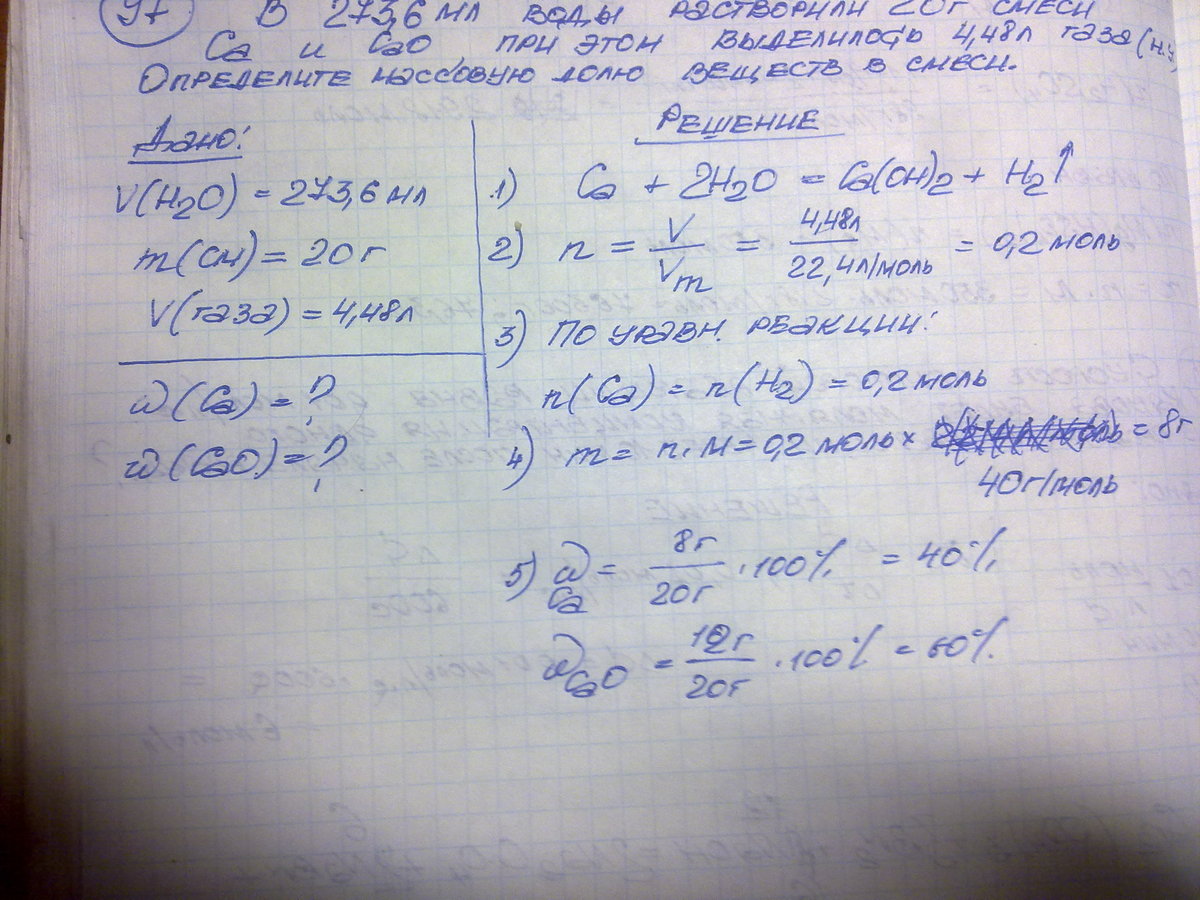 97 В 273,6 мл воды растворили 20г смеси
Ca и CaO при этом выделилось 4,48л газа (н.у)
Определите массовую долю веществ в смеси.
Дано:
V(H₂O) = 273,6 мл
m(см) = 20г
V(газа) = 4,48л
ω(Ca) = ?
ω(CaO) = ?
Решение
1) Ca + 2H₂O = Ca(OH)₂ + H₂↑
2) n = V/Vm = 4,48л/22,4л/моль = 0,2 моль
3) По уравн. реакции:
n(Ca) = n(H₂) = 0,2 моль
4) m = n·M = 0,2 моль × = 8г
40г/моль
5) ω Ca = 8г/20г · 100% = 40%
ω CaO = 12г/20г · 100% = 60%.